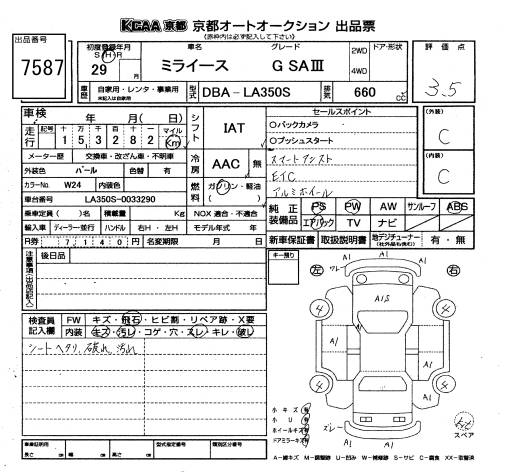 KCAA 京都 京都オートオークション 出品票
(赤枠内は必ず記入して下さい)
出品番号
7587
初度登録年月
S・H・R
29
年
車名
ミライース
グレード
G SAⅢ
2WD
4WD
ドア・形状
評価点
3.5
車歴
自家用・レンタ・事業用
未記入は自家用
型式
DBA-LA350S
排気
660
CC
車検
年 月 (日)
走行
記号
十 万 千 百 十 一 マイル
1 5 3 2 8 2 Km
シフト
IAT
冷房
AAC
無
燃料
ガソリン・軽油
メーター歴
交換車・改ざん車・不明車
外装色
パール
色替
有
カラーNo.
W24
内装色
車台番号
LA350S-0033290
乗車定員
( )名
積載量
Kg
NOX 適合・不適合
輸入車
ディーラー・並行
ハンドル
右H ・ 左H
モデル年式
年
R券
7140円
名変期限
月 日
セールスポイント
○バックカメラ
○プッシュスタート
スマートアシスト
ETC
アルミホイール
(外装)
C
(内装)
C
純正装備品
PS PW AW サンルーフ ABS
エアバック TV ナビ
新車保証書
取扱説明書
地デジチューナー
(社外品も含む)
有・無
注意事項(出品店記入)
後日品
キー預り
左
右
検査員記入欄
FW
キズ・飛石・ヒビ割・リペア跡・X要
内装
キズ・汚レ・コゲ・穴・スレ・キレ・破レ
シートヘタリ、破れ、汚れ
ワレ
A1
A1S
A1
A1
A1
A1
A1
4
4
4
4
ズレ
A1
A1
小キズ有
小U有
ホイールキズ有
ドアミラーキズ有
スペア
車庫証明用
長さ cm
幅 cm
高さ cm
型式指定番号
類別区分番号
A-線キズ M-調整跡 U-凹み W-補修跡 S-サビ C-腐食 XX-交換済